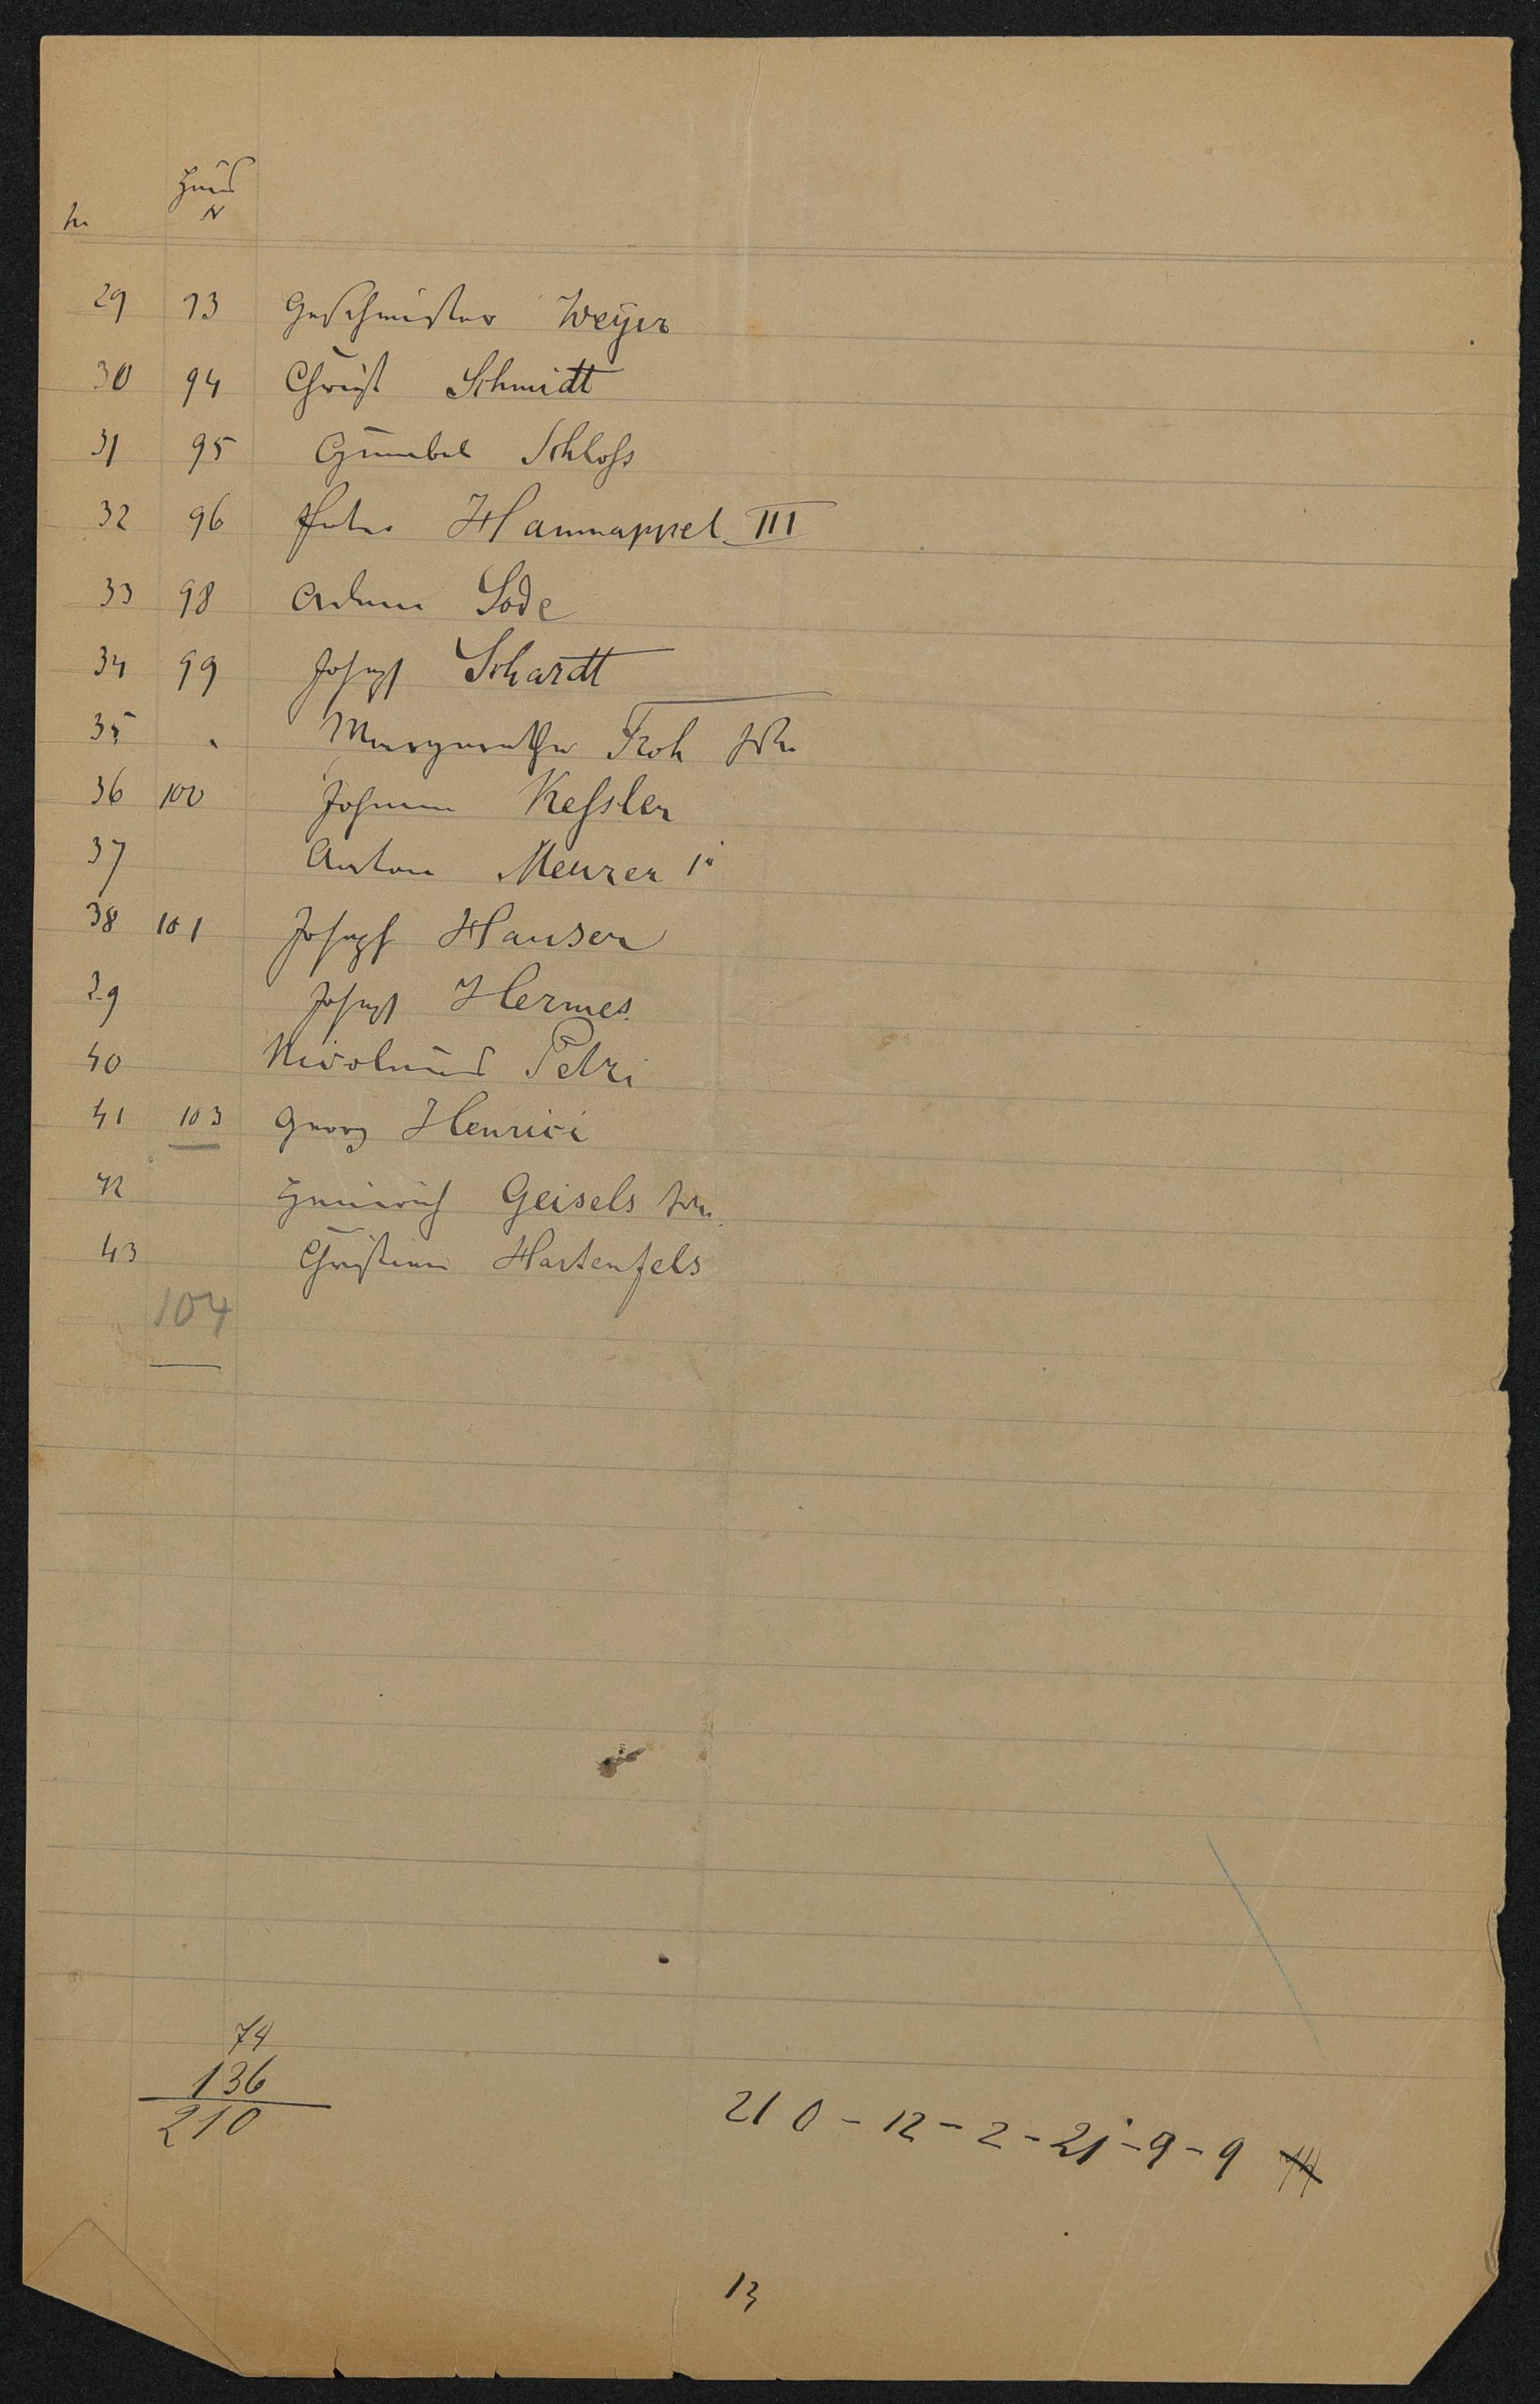 Haus
Nr N
29 93 Geschwister Weyer
30 94 Christ Schmidt
31 95 Gumbel Schloß
32 96 Peter Hannappel III
33 98 Adam Sode
34 99 Joseph Schardt
35 " Margarethe Froh Ww
36 100 Johann Keßler
37 Anton Meurer 1r
38 101 Joseph Hauser
39 Joseph Hermes
40 Nicolaus Petri
41 103 Georg Henrici
42 Heinrich Geisels Ww
43 Christian Hartenfels
104
74
136
210
210 - 12 - 2 - 21 - 9 - 9
13